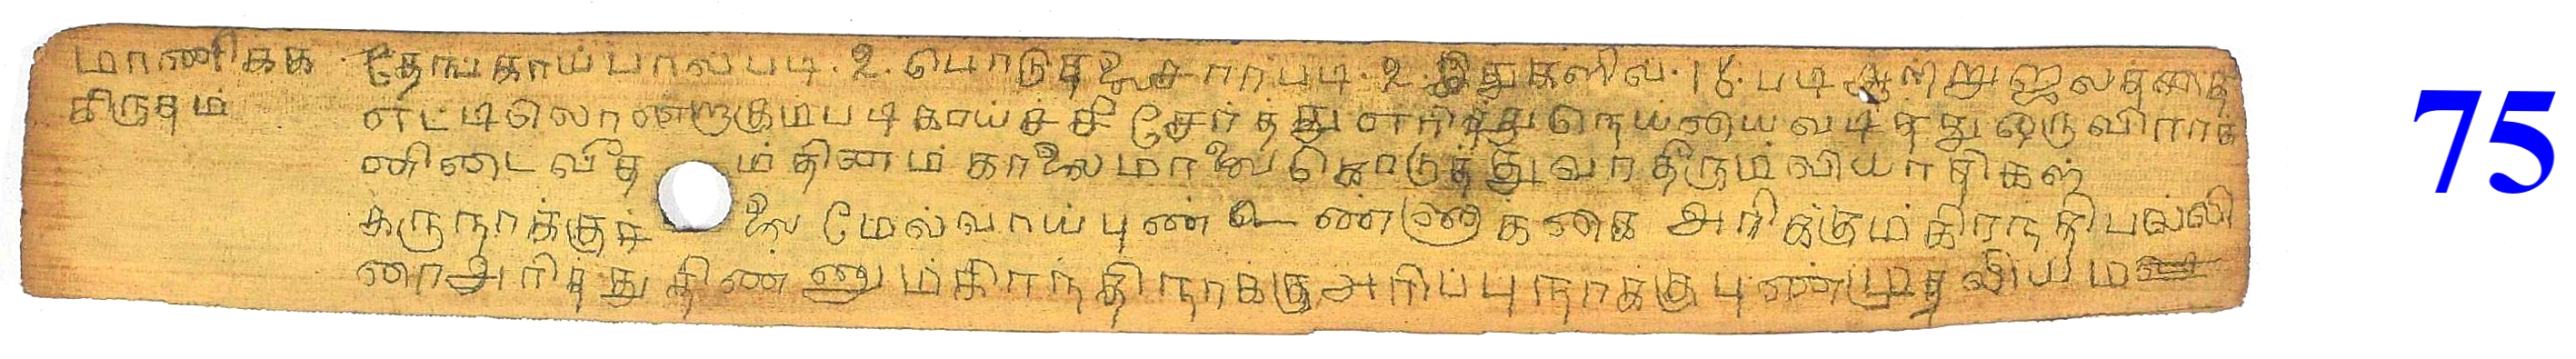 மாணிகக தேஙகாய்பால்படி.உ.பொடுதலைசாறுபடி.உ.இதுகளில்.16.படிஆற்றுஜலததை
கிருதம் எட்டிலொண்றாகுமபடிகாய்ச்சி சேர்த்துஎரித்துநெய்யைவடித்துஒருவிராக
னிடைவீத ம்தினம் காலைமாலை கொடுத்துவரதீரும் வியாதிகள்
கருநாக்குச் லை மேல்வாய்புண் உண்ணாககை அரிக்கும்கிரநதிபல்லி
னாஅரித்துதிண்ணும்கிரந்திநாக்குஅரிப்புநாக்குபுண்முதலியம
75